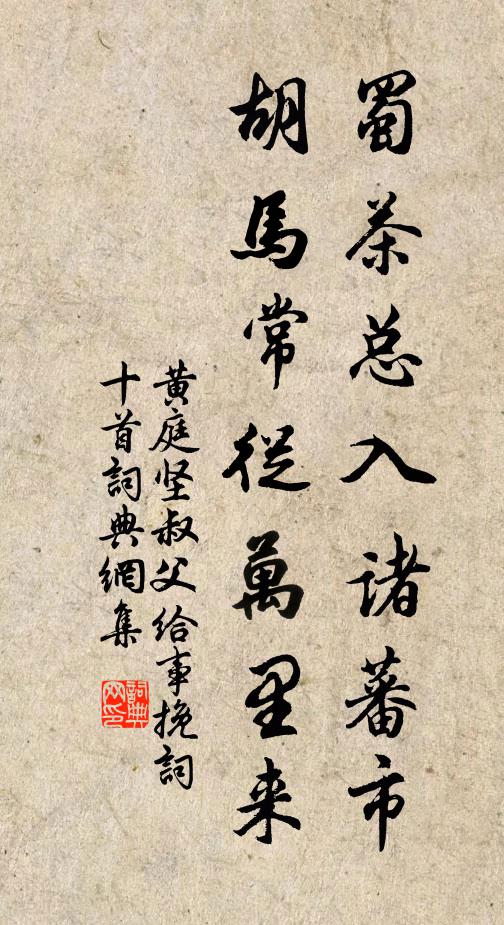 蜀茶总入诸蕃市
胡馬常從萬里来
黄庭坚叔父给事挽詞
十首詞典網集
詞典网印